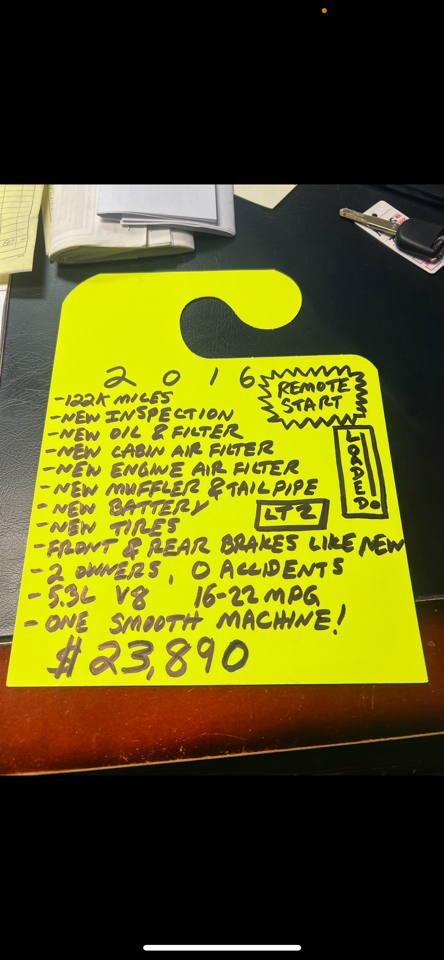 2016
REMOTE
START
-122K MILES
-NEW INSPECTION
-NEW OIL & FILTER
-NEW CABIN AIR FILTER
-NEW ENGINE AIR FILTER
-NEW MUFFLER & TAILPIPE
LOADED
-NEW BATTERY
LTZ
-NEW TIRES
-FRONT & REAR BRAKES LIKE NEW
-2 OWNERS, 0 ACCIDENTS
-5.3L V8 16-22 MPG
-ONE SMOOTH MACHINE!
$23,890